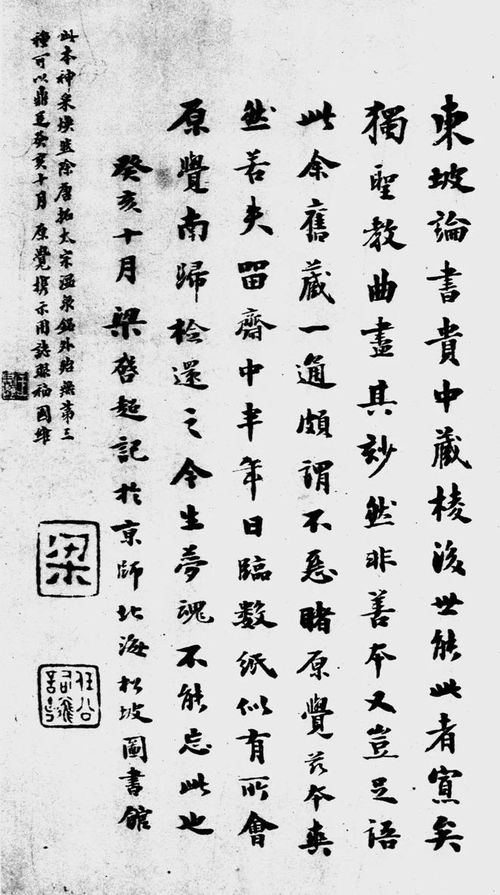 東坡論書貴中藏棱後世能此者寡矣
獨聖教曲盡其妙然非善本又豈足語
此余舊藏一通頗謂不惡睹原覺茲本爽
然若失留齋中半年日臨數紙似有所會
原覺南歸檢還之令生夢魂不能忘此也
癸亥十月梁啓超記於京師北海松坡圖書館
此本神采煥並除唐拓太宗溫泉銘外殆無第三
種可以鼎足癸亥十月原覺携示因識眼福國維
梁
任公